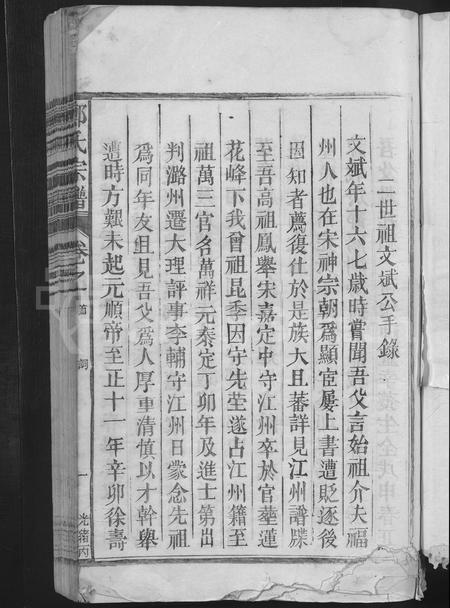 二世祖文斌公手錄
文斌年十六七歲時嘗聞吾父言始祖介夫福
州人也在宋神宗朝為顯宦屢上書遭貶逐後
因知者薦復仕於是族大且蕃詳見江州譜牒
至吾高祖鳳舉宋嘉定中守江州卒於官塟蓮
花峰下我曾祖昆季因守先塋遂占江州籍至
祖萬三官名萬祥元泰定丁卯年及進士第出
判潞州遷大理評事李輔守江州日蒙念先祖
為同年友且見吾父為人厚重清慎以才幹舉
遭時方艱未起元順帝至正十一年辛卯徐壽
氏宗譜
卷之
首
詞
一
光緒丙